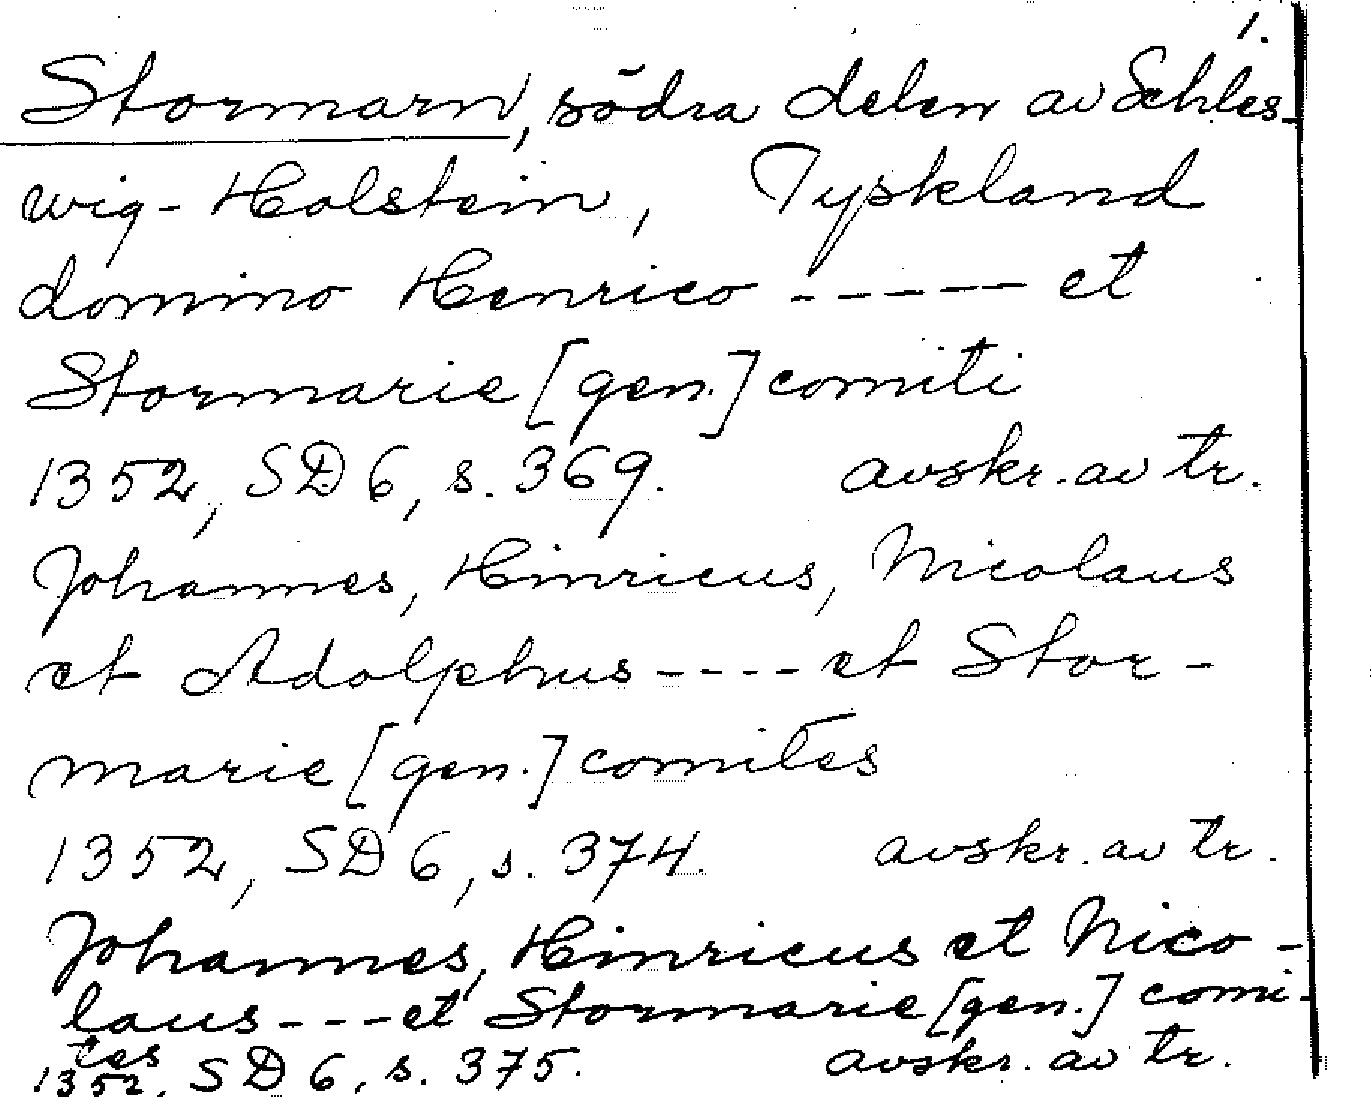 1.
Stormarn, södra delen av Schles-
wig-Holstein, Tyskland
domino Henrico ----- et
Stormarie [gen.] comiti
1352, SD 6, s. 369. avskr. av tr.
Johannes, Hinricus, Nicolaus
et Adolphus ---- et Stor-
marie [gen.] comites
1352, SD 6, s. 374. avskr. av tr.
Johannes, Hinricus et Nico-
laus --- et Stormarie [gen.] comi-
tes
1352, SD 6, s. 375. avskr. av tr.